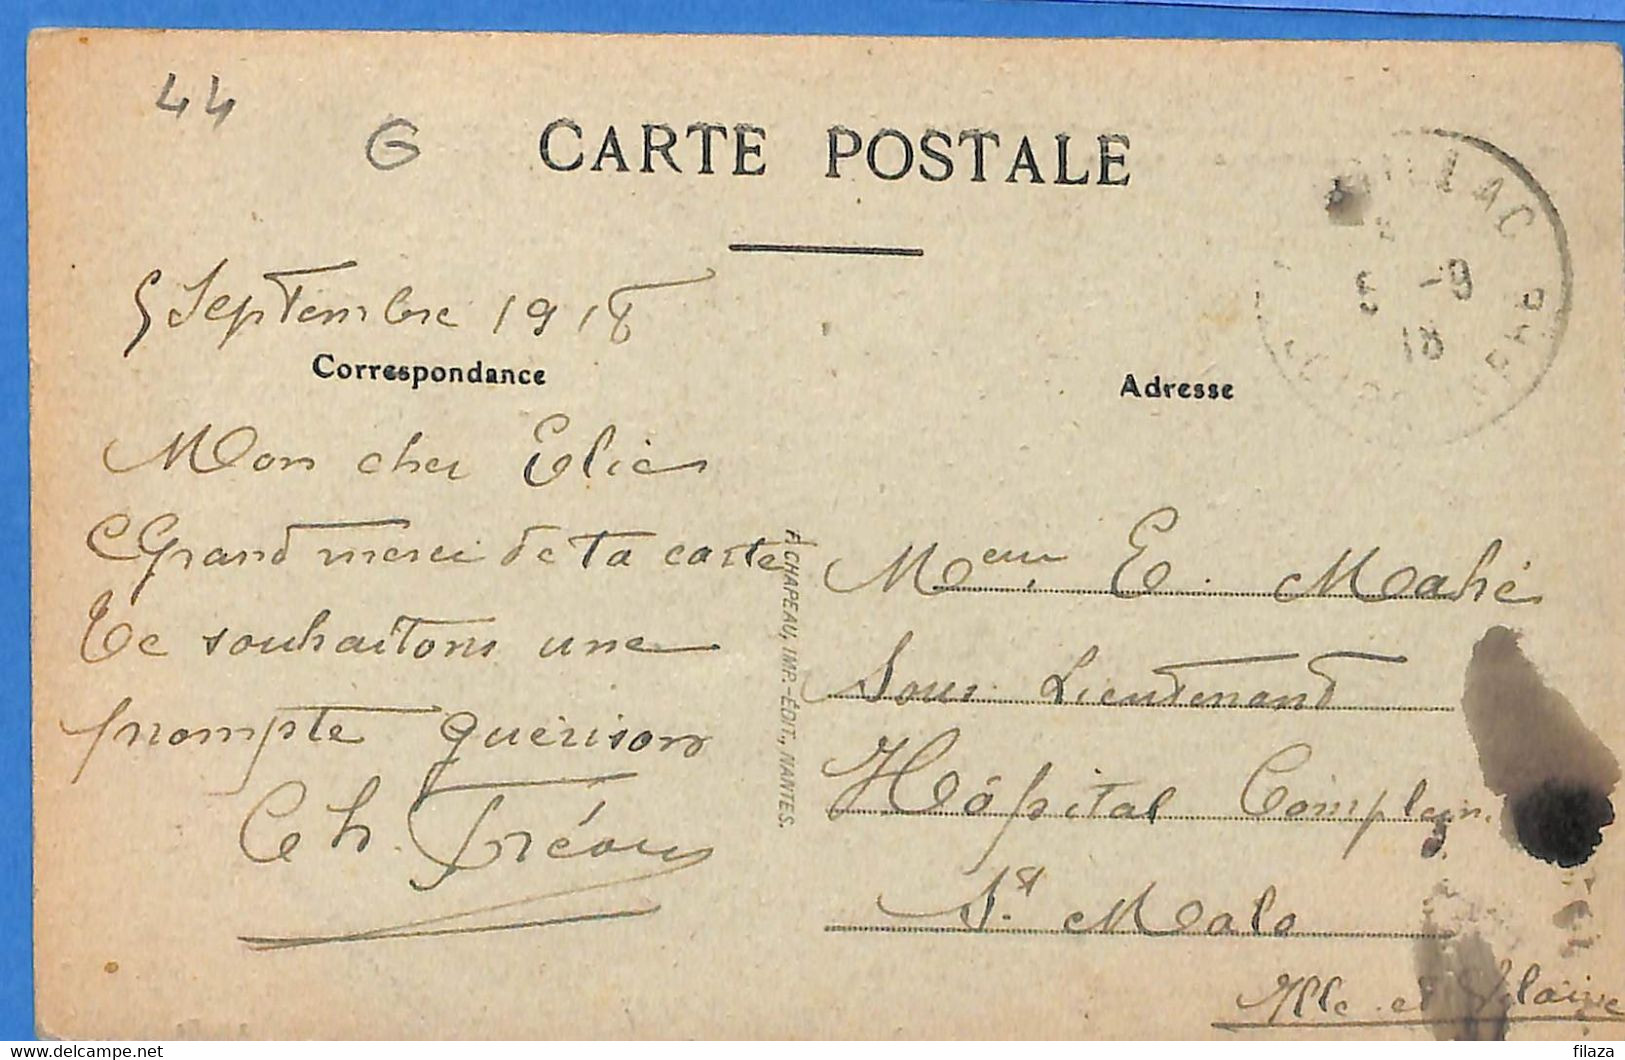 44
G
CARTE POSTALE
5 Septembre 1918
Correspondance
Adresse
5 -9
18
Mon cher Elie
Grand merci de ta carte
Te souhaitons une
prompte guérison
Ch. Tréou
F. CHAPEAU, IMP.-ÉDIT., NANTES.
Meur E. Mahé
Sous Lieutenand
Hôpital Complem.
St. Malo
Ille et Vilaine
filaza